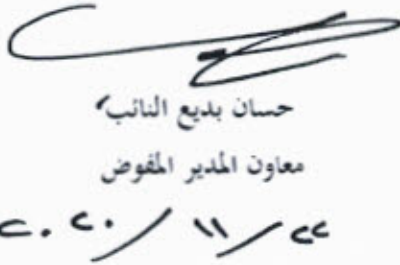 حسان بديع النائب
معاون المدير المفوض
٢٠٢٠/١١/٢٢